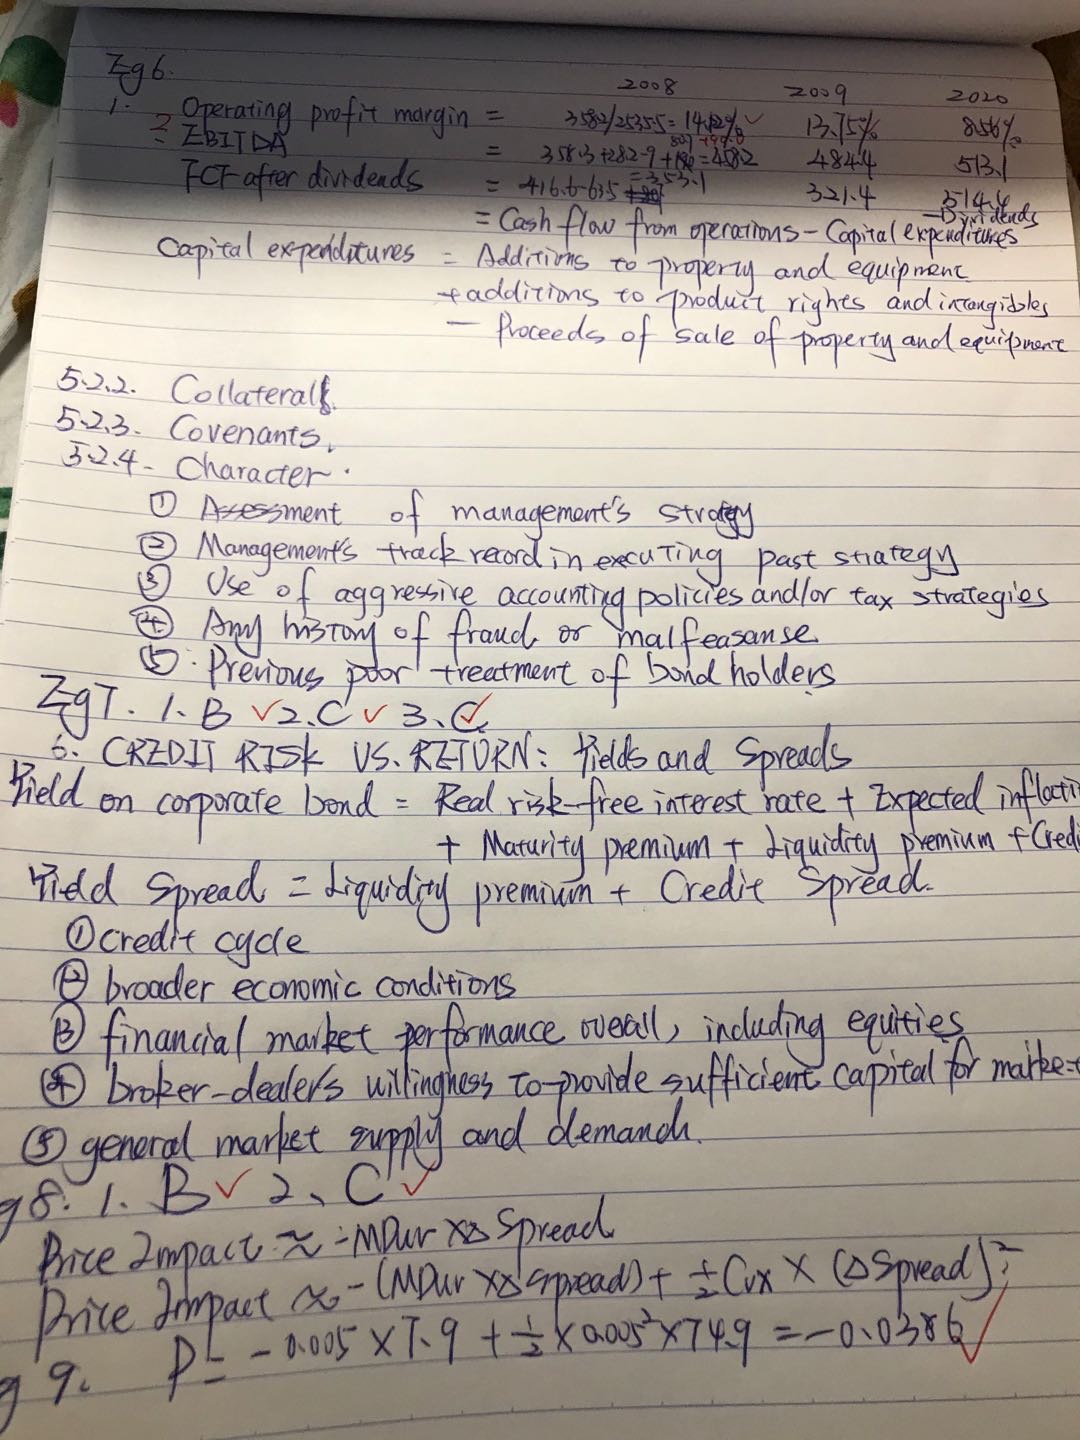 Eg 6.
2008 2009 2020
1. Operating profit margin = 358.2/2535.5 = 14.12% ✓ 13.75% 8.56%
2 EBITDA = 358.3+282.9+ = 458.2 484.4 513.1
FCF after dividends = 416.6-63.5 = 353.1 321.4 514.4
= Cash flow from operations - Capital expenditures - Dividends
Capital expenditures = Additions to property and equipment
+ additions to product rights and intangibles
- Proceeds of sale of property and equipment
5.2.2. Collateral
5.2.3. Covenants.
5.2.4. Character.
① Assessment of management's strategy
② Management's track record in executing past strategy
③ Use of aggressive accounting policies and/or tax strategies
④ Any history of fraud or malfeasanse
⑤. Previous poor treatment of bond holders
Eg 7. 1. B ✓ 2. C ✓ 3. C ✓
6. CREDIT RISK VS. RETURN: Yields and Spreads
Yield on corporate bond = Real risk-free interest rate + Expected inflati
+ Maturity premium + Liquidity premium + Credi
Yield Spread = Liquidity premium + Credit Spread.
① credit cycle
② broader economic conditions
③ financial market performance overall, including equities
④ broker-dealers willingness to provide sufficient capital for market
⑤ general market supply and demand.
g 8. 1. B ✓ 2、C ✓
Price Impact ≈ -MDur × Δ Spread
Price Impact ≈ -(MDur × Δ Spread) + ½ Cvx × (Δ Spread)²
g 9. P = -0.005 × 7.9 + ½ × 0.005² × 74.9 = -0.0386 ✓